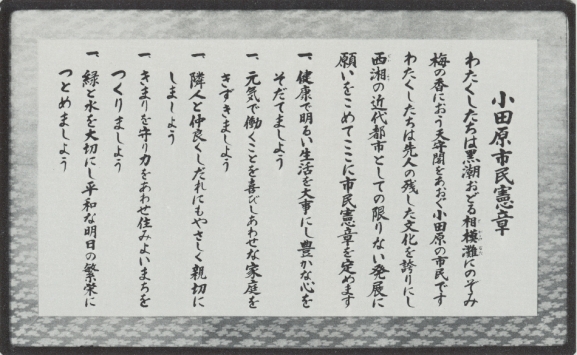 小田原市民憲章
わたくしたちは黒潮おどる相模灘にのぞみ
梅の香におう天守閣をあおぐ小田原の市民です
わたくしたちは先人の残した文化を誇りにし
西湘の近代都市としての限りない発展に
願いをこめてここに市民憲章を定めます
一、健康で明るい生活を大事にし豊かな心を
そだてましょう
一、元気で働くことを喜びしあわせな家庭を
きずきましょう
一、隣人と仲良くしだれにもやさしく親切に
しましょう
一、きまりを守り力をあわせ住みよいまちを
つくりましょう
一、緑と水を大切にし平和な明日の繁栄に
つとめましょう